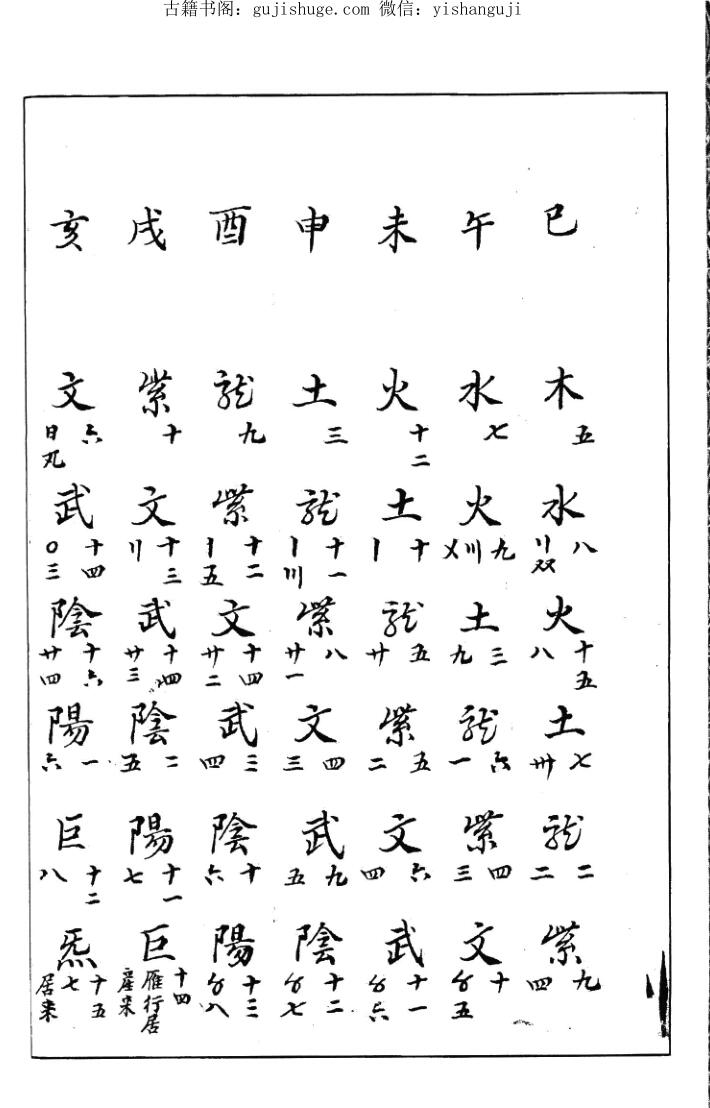 古籍书阁：gujishuge.com 微信：yishanguji
巳 木 五 水 八 〢双 火 十五 八 土 七 卅 龍 二 二 紫 九 四
午 水 七 火 九 〤〣 土 三 九 龍 六 一 紫 四 三 文 十 彡五
未 火 十二 土 十 〡 龍 五 廿 紫 五 二 文 六 四 武 十一 彡六
申 土 三 龍 十一 〡〣 紫 八 廿一 文 四 三 武 九 五 陰 十二 彡七
酉 龍 九 紫 十二 〡五 文 十四 廿二 武 三 四 陰 十 六 陽 十三 彡八
戌 紫 十 文 十三 〢 武 十四 廿三 陰 二 五 陽 十一 七 巨 十四 雁行居 産来
亥 文 六 日丸 武 十四 〇三 陰 十六 廿四 陽 一 六 巨 十二 八 炁 十五 七 居来